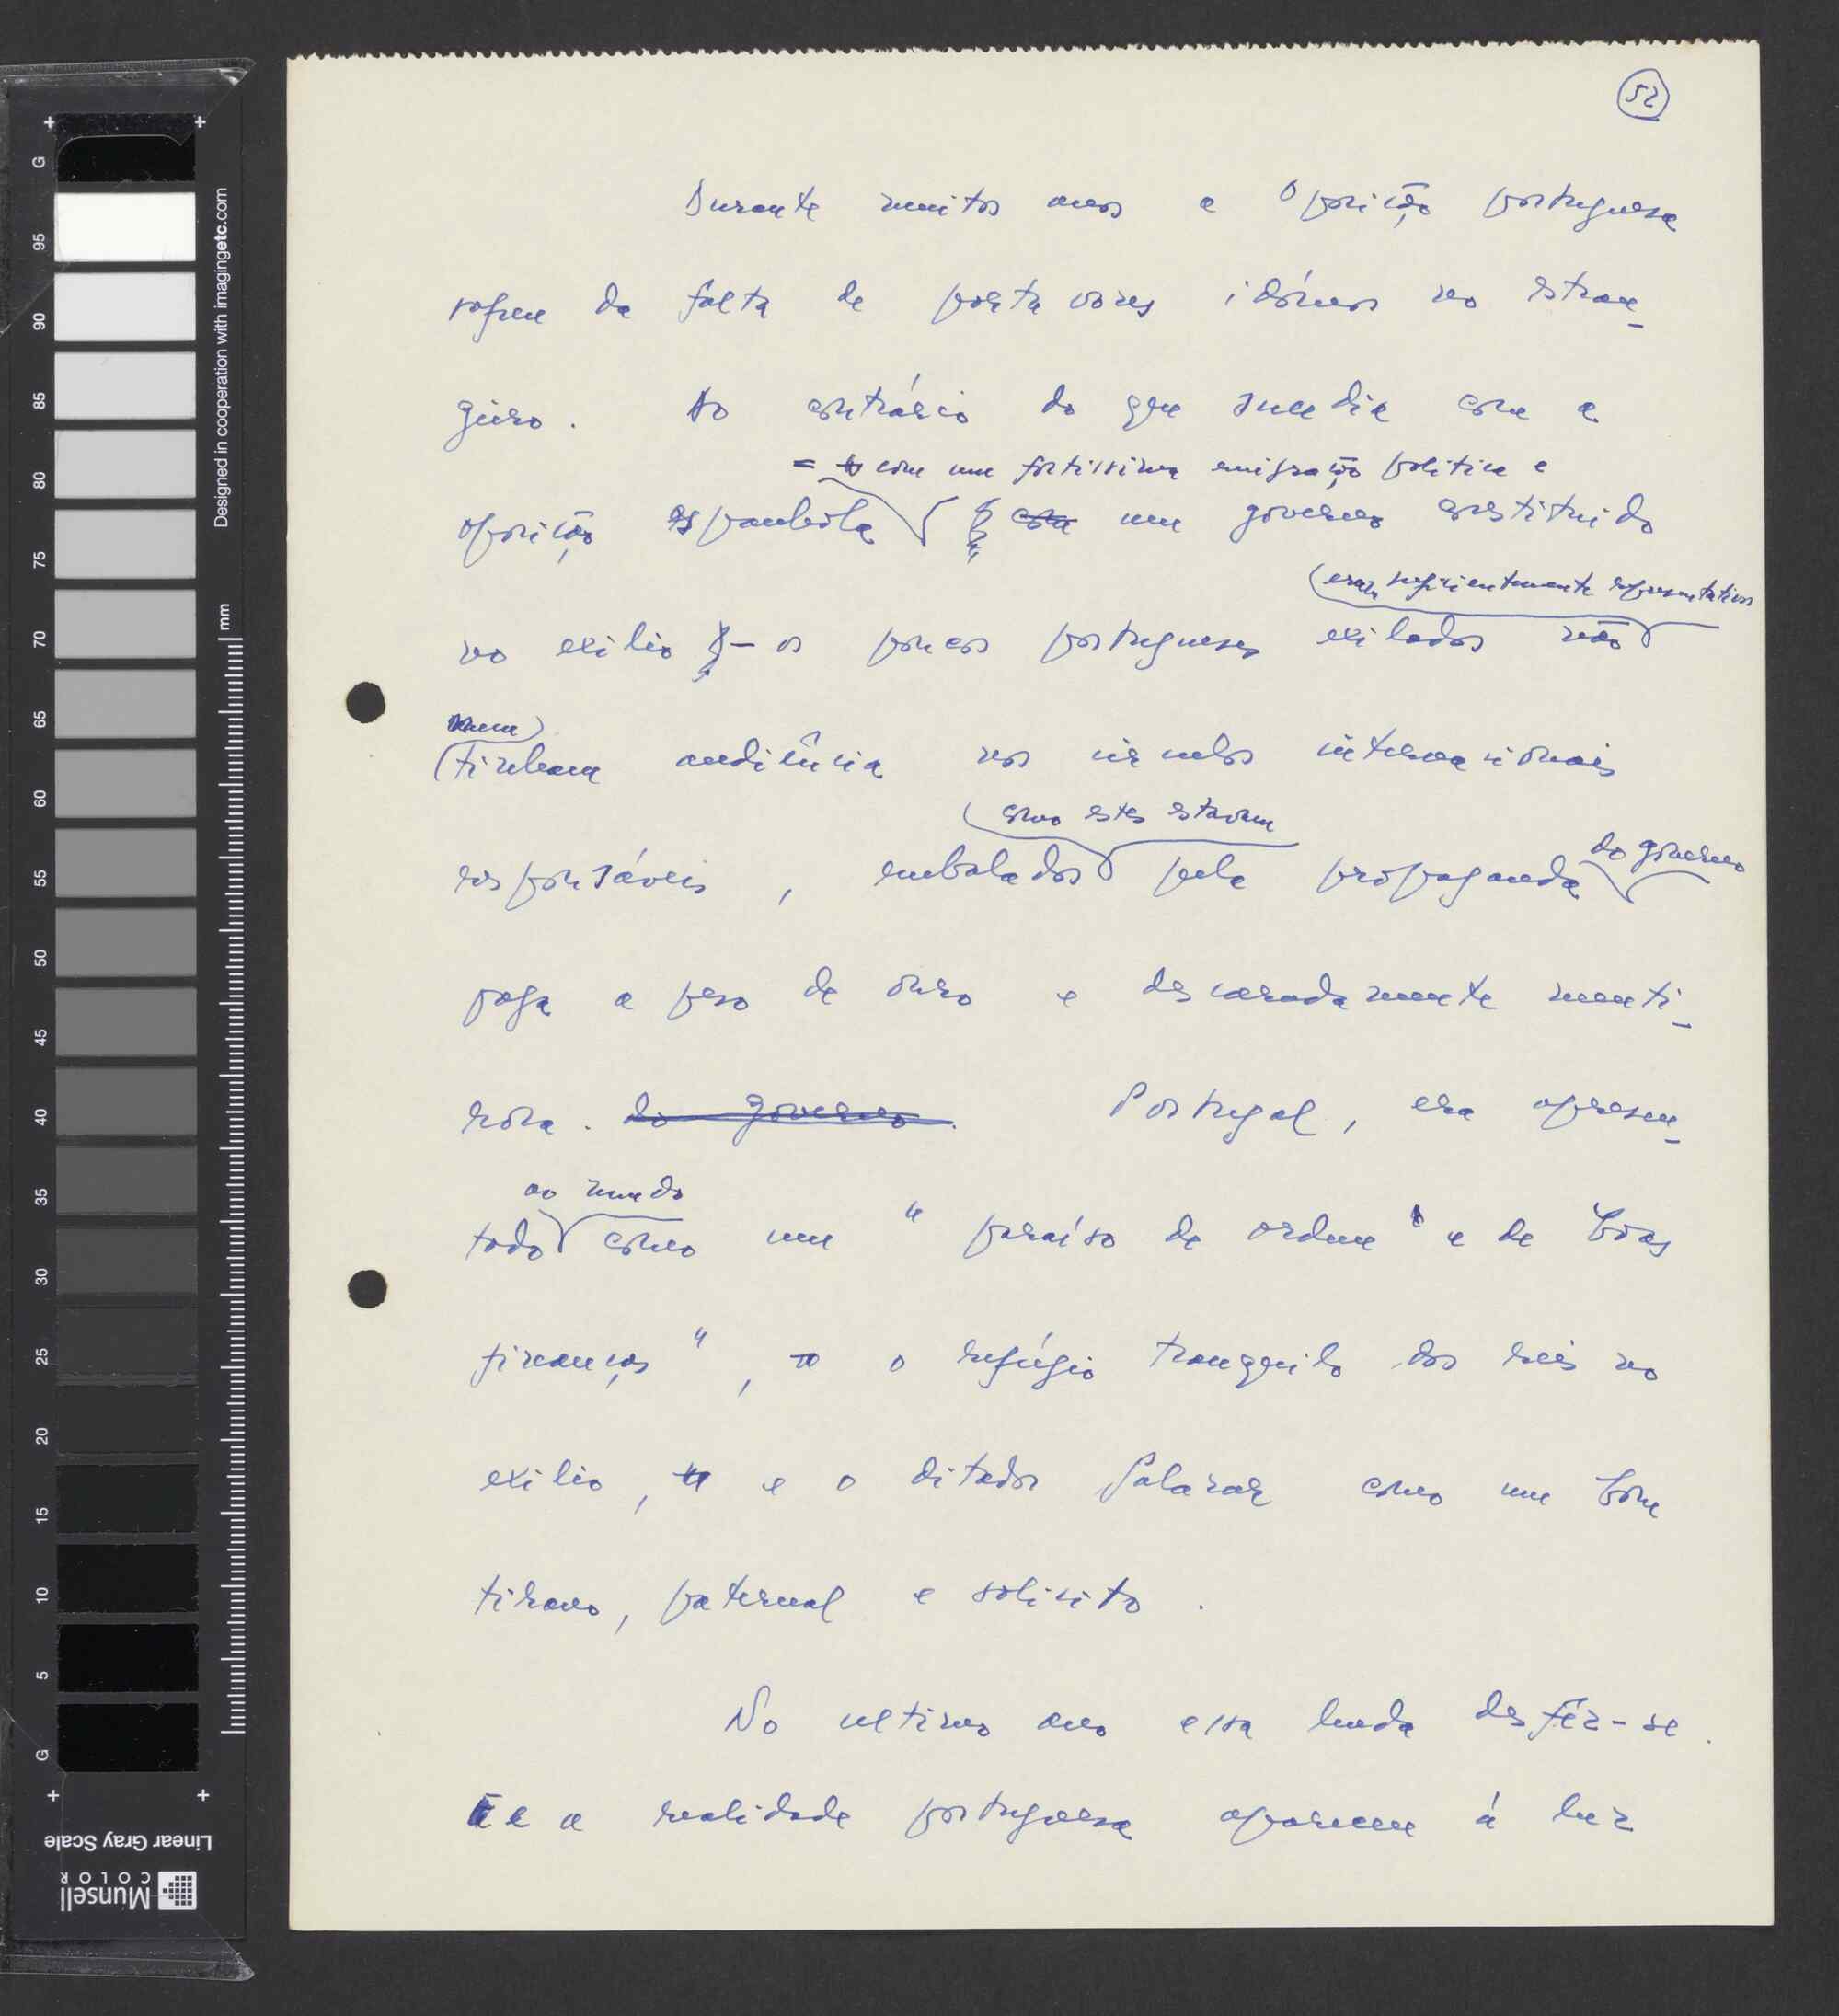 52
Durante muitos anos a Oposição portuguesa
sofreu da falta de porta vozes idóneos no estran-
geiro. Ao contrário do que sucedia com a
= com uma fortíssima emigração política e
oposição espanhola com um governo constituido
eram suficientemente representativos
no exilio - os poucos portugueses exilados não
nem
tinham audiência nos circulos internacionais
como estes estavam
do governo
responsáveis, embalados pela propaganda
paga a peso de ouro e descaradamente menti-
rosa. do governo. Portugal, era apresen-
ao mundo
tado como um "paraíso de ordem e de boas
finanças", o refúgio tranquilo dos reis no
exilio, e o ditador Salazar como um bom
tirano, paternal e solicito.
No ultimo ano essa lenda desfêz-se.
E a realidade portuguesa apareceu à luz
G
95
90
85
80
75
70
65
60
55
50
45
40
35
30
25
20
15
10
5
G
Designed in cooperation with imagingetc.com
mm
Linear Gray Scale
Munsell
COLOR